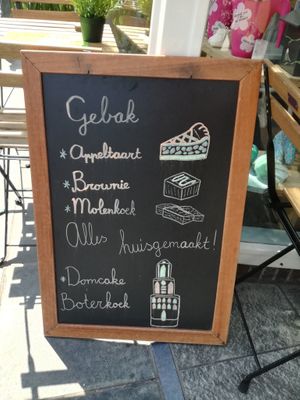 Gebak
* Appeltaart
* Brownie
* Molenkoek
Alles huisgemaakt!
* Domcake
Boterkoek